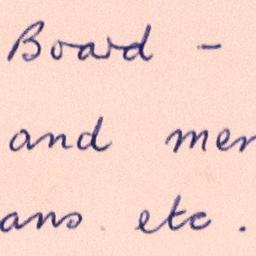 Board -
and mer
ans etc.